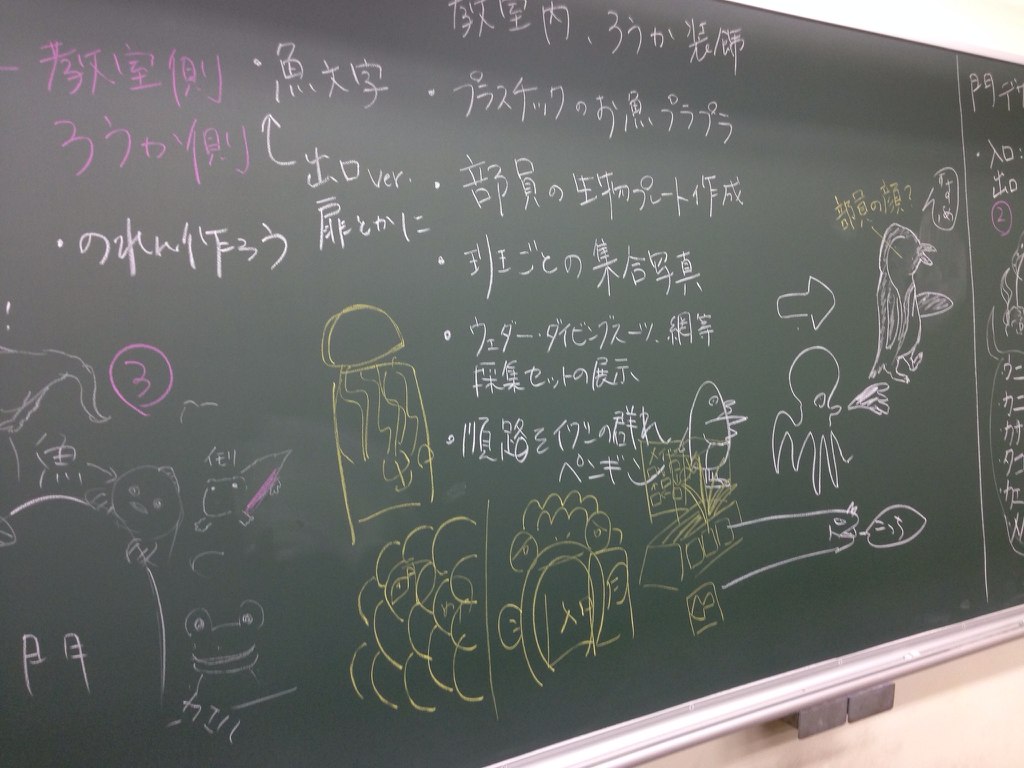 教室側
ろうか側
・魚文字
出口ver.
扉とかに
・のれん作ろう
③
魚
イモリ
カエル
門
教室内、ろうか装飾
・プラスチックのお魚プラプラ
・部員の生物プレート作成
・班ごとの集合写真
・ウェダー・ダイビングスーツ、網等
採集セットの展示
・順路をイワシの群れ
ペンギン
入口
部員の顔?
こっち
門デ
・入口:
出口
②
ワニ
カニ
カサ
タコ